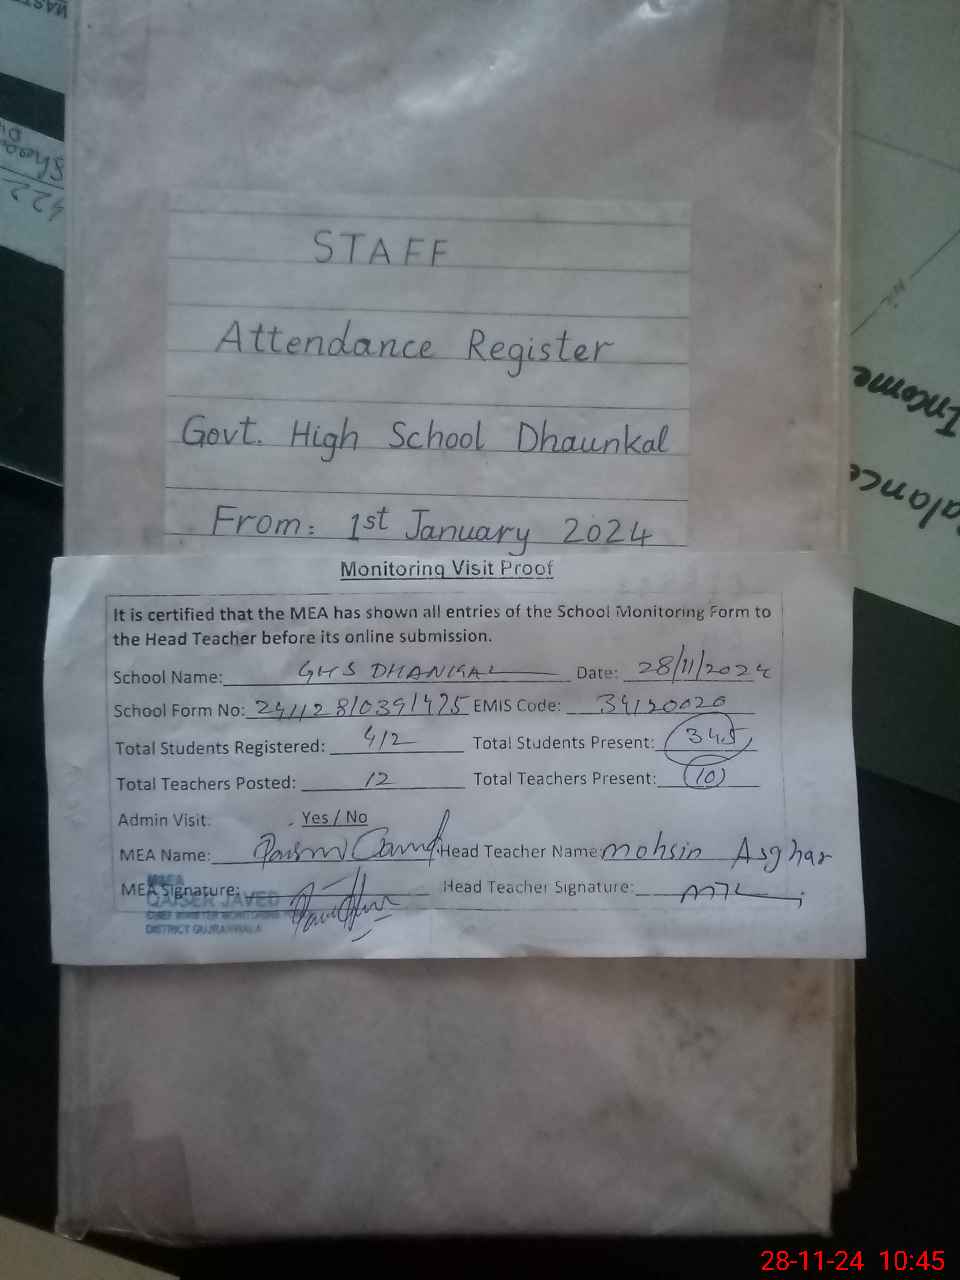 STAFF
Attendance Register
Govt. High School Dhaunkal
From: 1st January 2024
Monitoring Visit Proof
It is certified that the MEA has shown all entries of the School Monitoring Form to
the Head Teacher before its online submission.
School Name: GHS DHANKAL Date: 28/11/2024
School Form No: EMIS Code: 34120020
Total Students Registered: 412 Total Students Present: 345
Total Teachers Posted: 12 Total Teachers Present: 10
Admin Visit: Yes / No
MEA Name: Head Teacher Name: mohsin Asghar
MEA Signature: Head Teacher Signature:
MEA
QAISER JAVED
CHIEF MINISTER MONITORING
DISTRICT GUJRANWALA
Income
alance
422
28-11-24 10:45